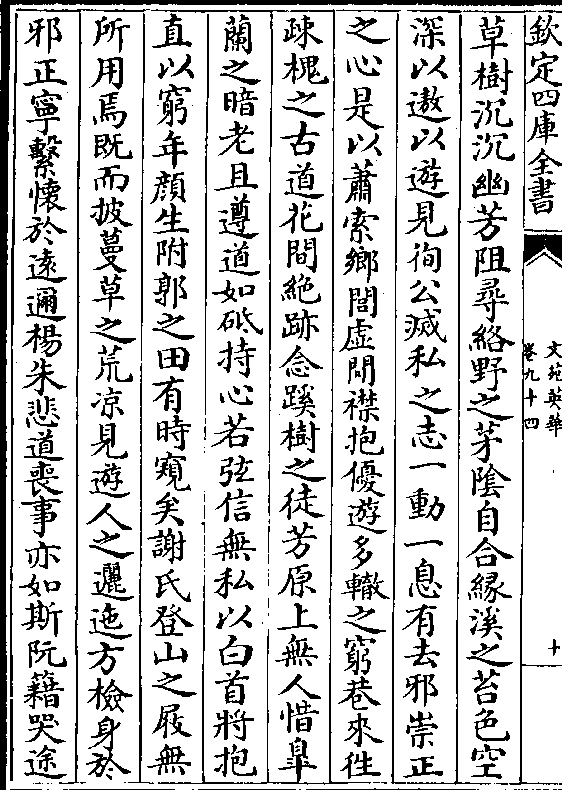 欽定四庫全書
文苑英華
卷九十四
十
草樹沉沉幽芳阻尋絡野之茅隂自合縁溪之苔色空
深以遨以遊見徇公滅私之志一動一息有去邪崇正
之心是以蕭索鄉閭虛閒襟抱優遊多轍之窮巷來徃
疎槐之古道花間絶跡念蹊樹之徒芳原上無人惜臯
蘭之暗老且遵道如砥持心若弦信無私以白首將抱
直以窮年顔生附郭之田有時窺矣謝氏登山之屐無
所用焉既而披蔓草之荒凉見遊人之邐迤方檢身於
邪正寧繫懷於遠邇楊朱悲道喪事亦如斯阮籍哭途